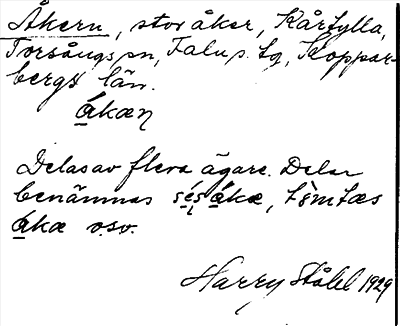 Åkern, stor åker, Kårtylla,
Torsångs sn, Falu s. tg, Koppar-
bergs län.
åkæn
Delas av flera ägare. Delar
benämnas åkæ,
åkæ o.s.v.
Harry Ståhl 1929